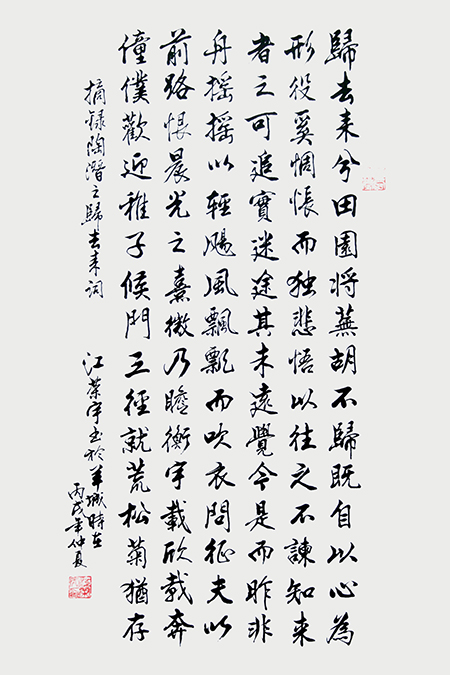 歸去来兮田園将蕪胡不歸既自以心為
形役奚惆悵而独悲悟以往之不諫知来
者之可追實迷途其未遠覺今是而昨非
舟摇摇以輕颺風飄飄而吹衣問征夫以
前路恨晨光之熹微乃瞻衡宇載欣載奔
僮僕歡迎稚子候門三徑就荒松菊猶存
摘録陶潛之歸去来词
江榮宇书於羊城時在
丙戌年仲夏